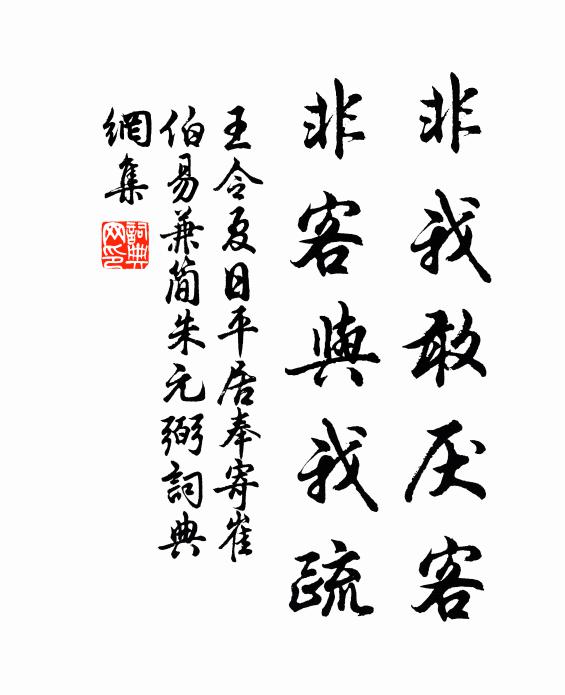 非我敢厌客
非客與我疏
王令夏日平居奉寄崔
伯易兼简朱元弼詞典
網集
詞典網印